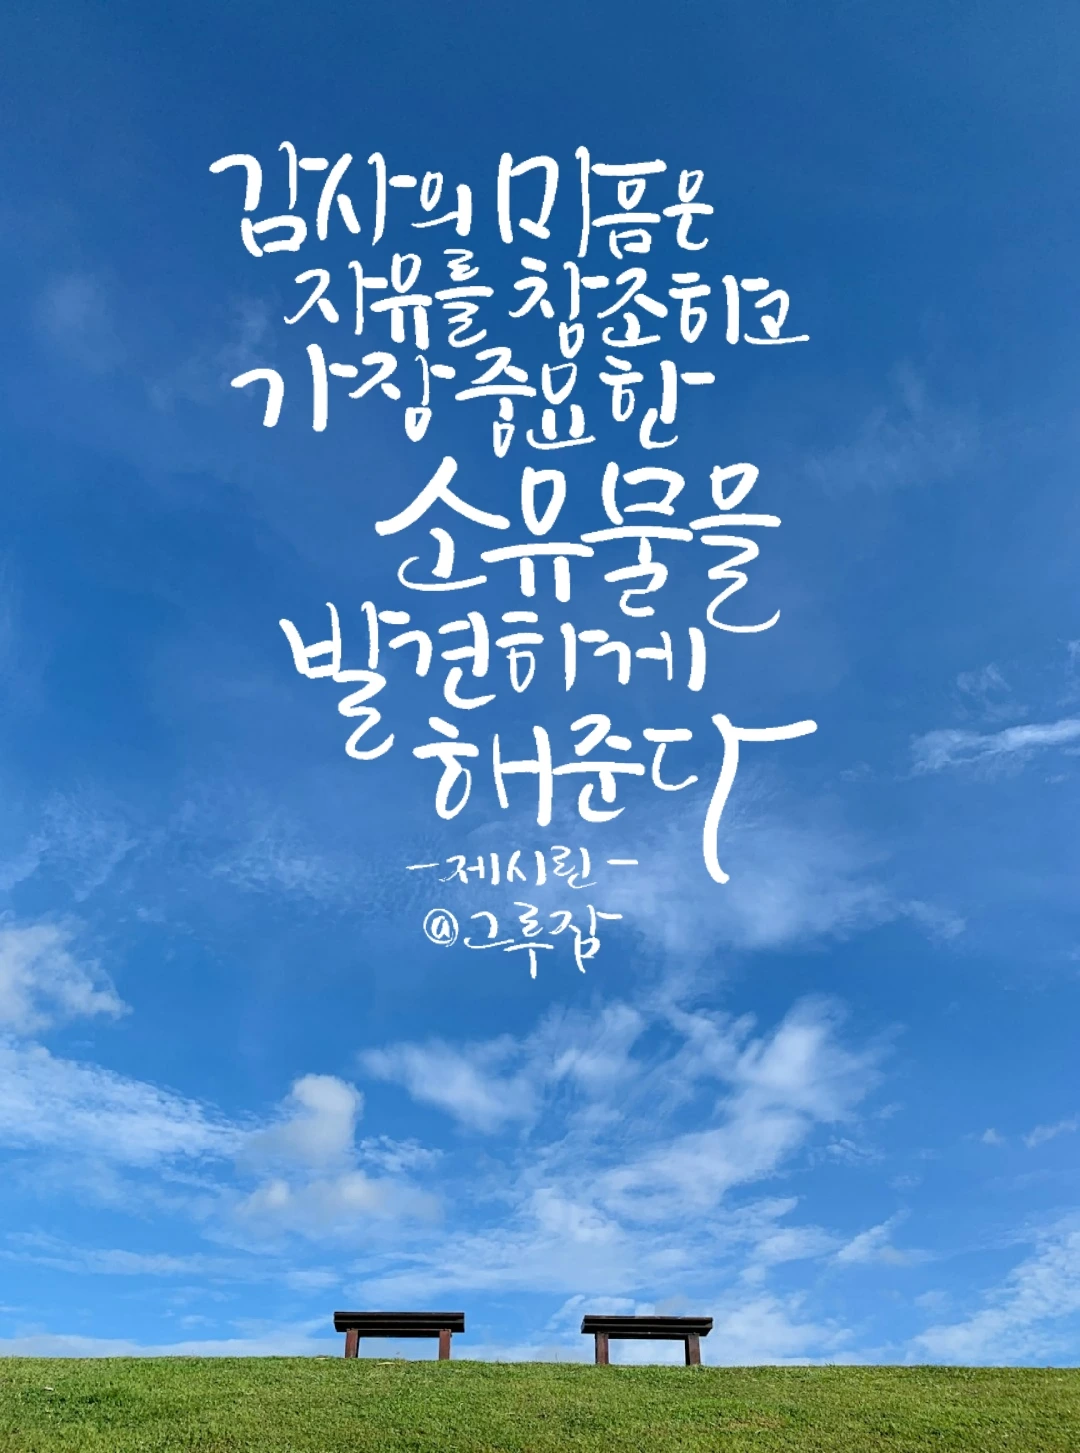 감사의 미픔은
자유를 창조하고
가장 중요한
소유물을
발견하게
해준다
-제시린-
@그루잠